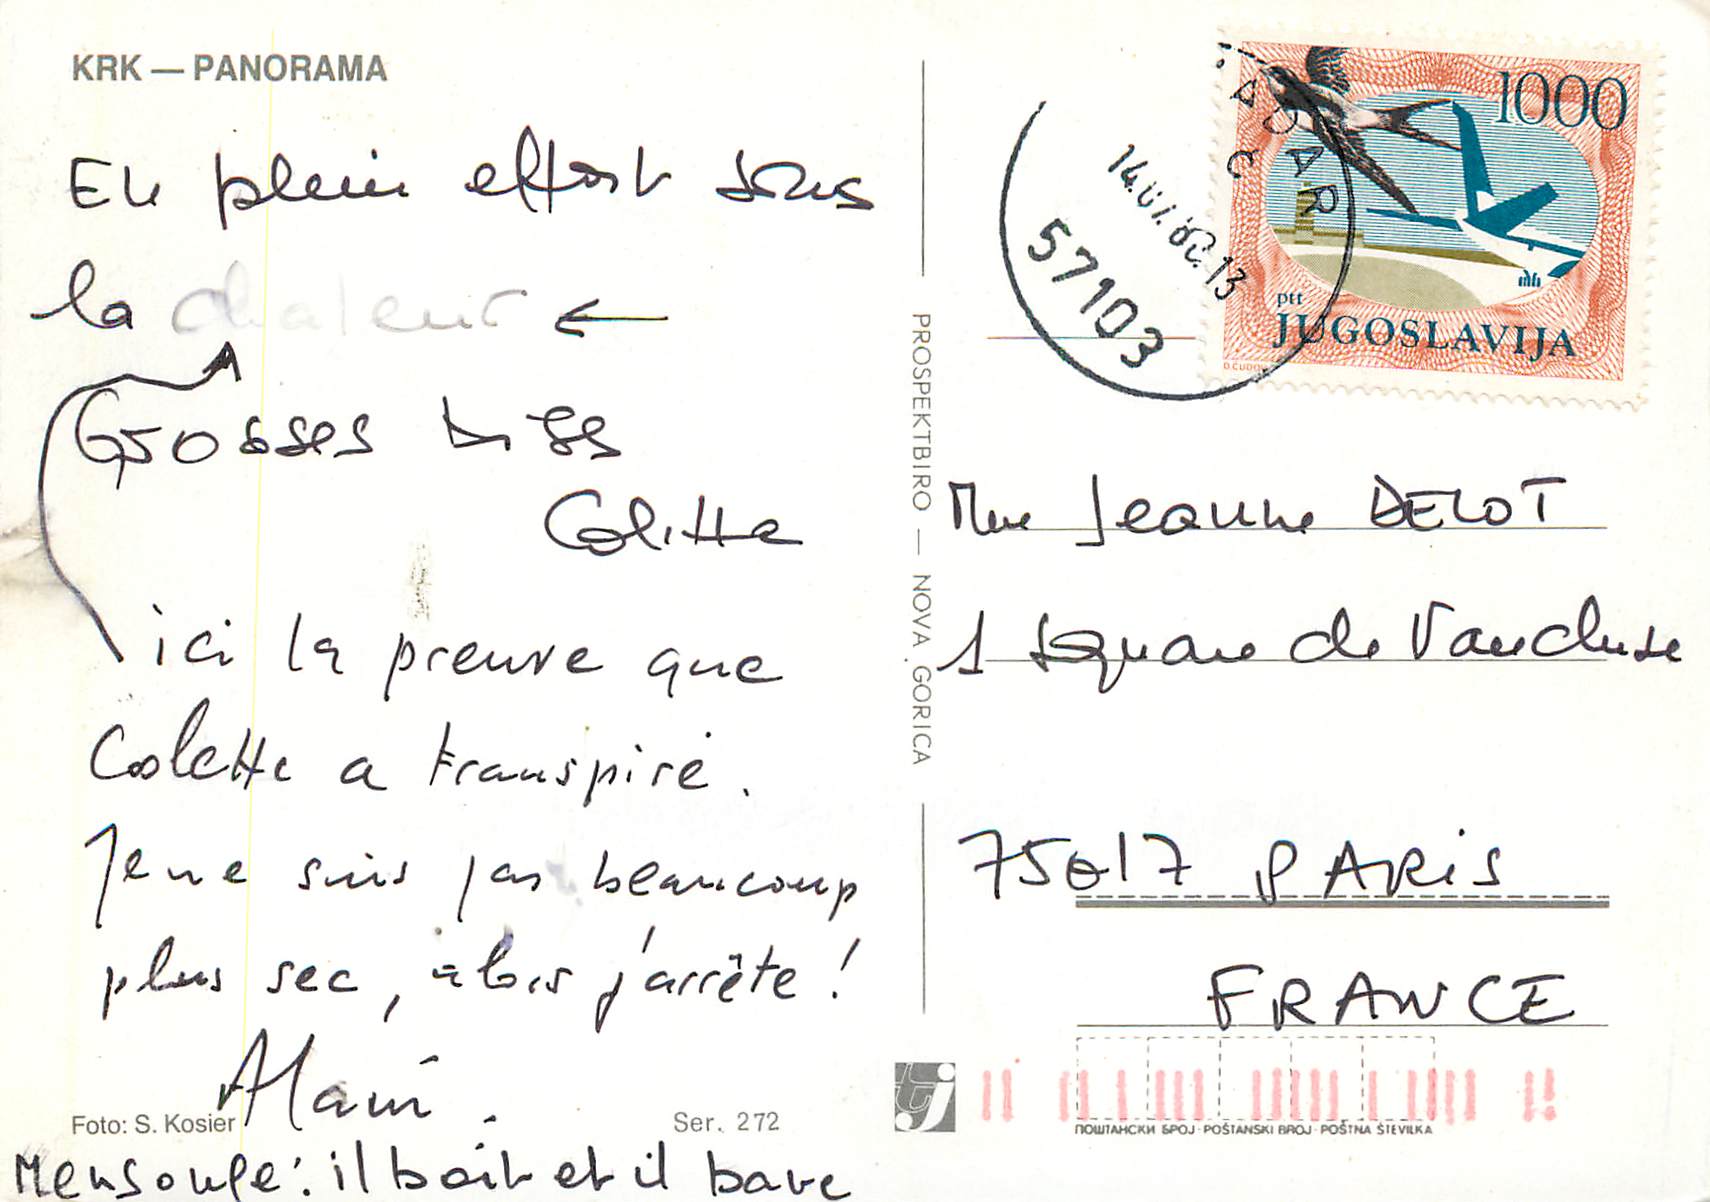 KRK — PANORAMA
En plein effort sous
la chaleur ←
Grosses bises
Colette
ici la preuve que
Colette a transpiré.
Je ne suis pas beaucoup
plus sec, alors j'arrête !
Alain.
Foto: S. Kosier
Ser. 272
Mensonge : il boit et il bave
PROSPEKTBIRO — NOVA GORICA
1000
ptt
JUGOSLAVIJA
57103
Mme Jeanne DELOT
1 Square de Vaucluse
75017 PARIS
FRANCE
ПОШТАНСКИ БРОЈ · POŠTANSKI BROJ · POŠTNA ŠTEVILKA